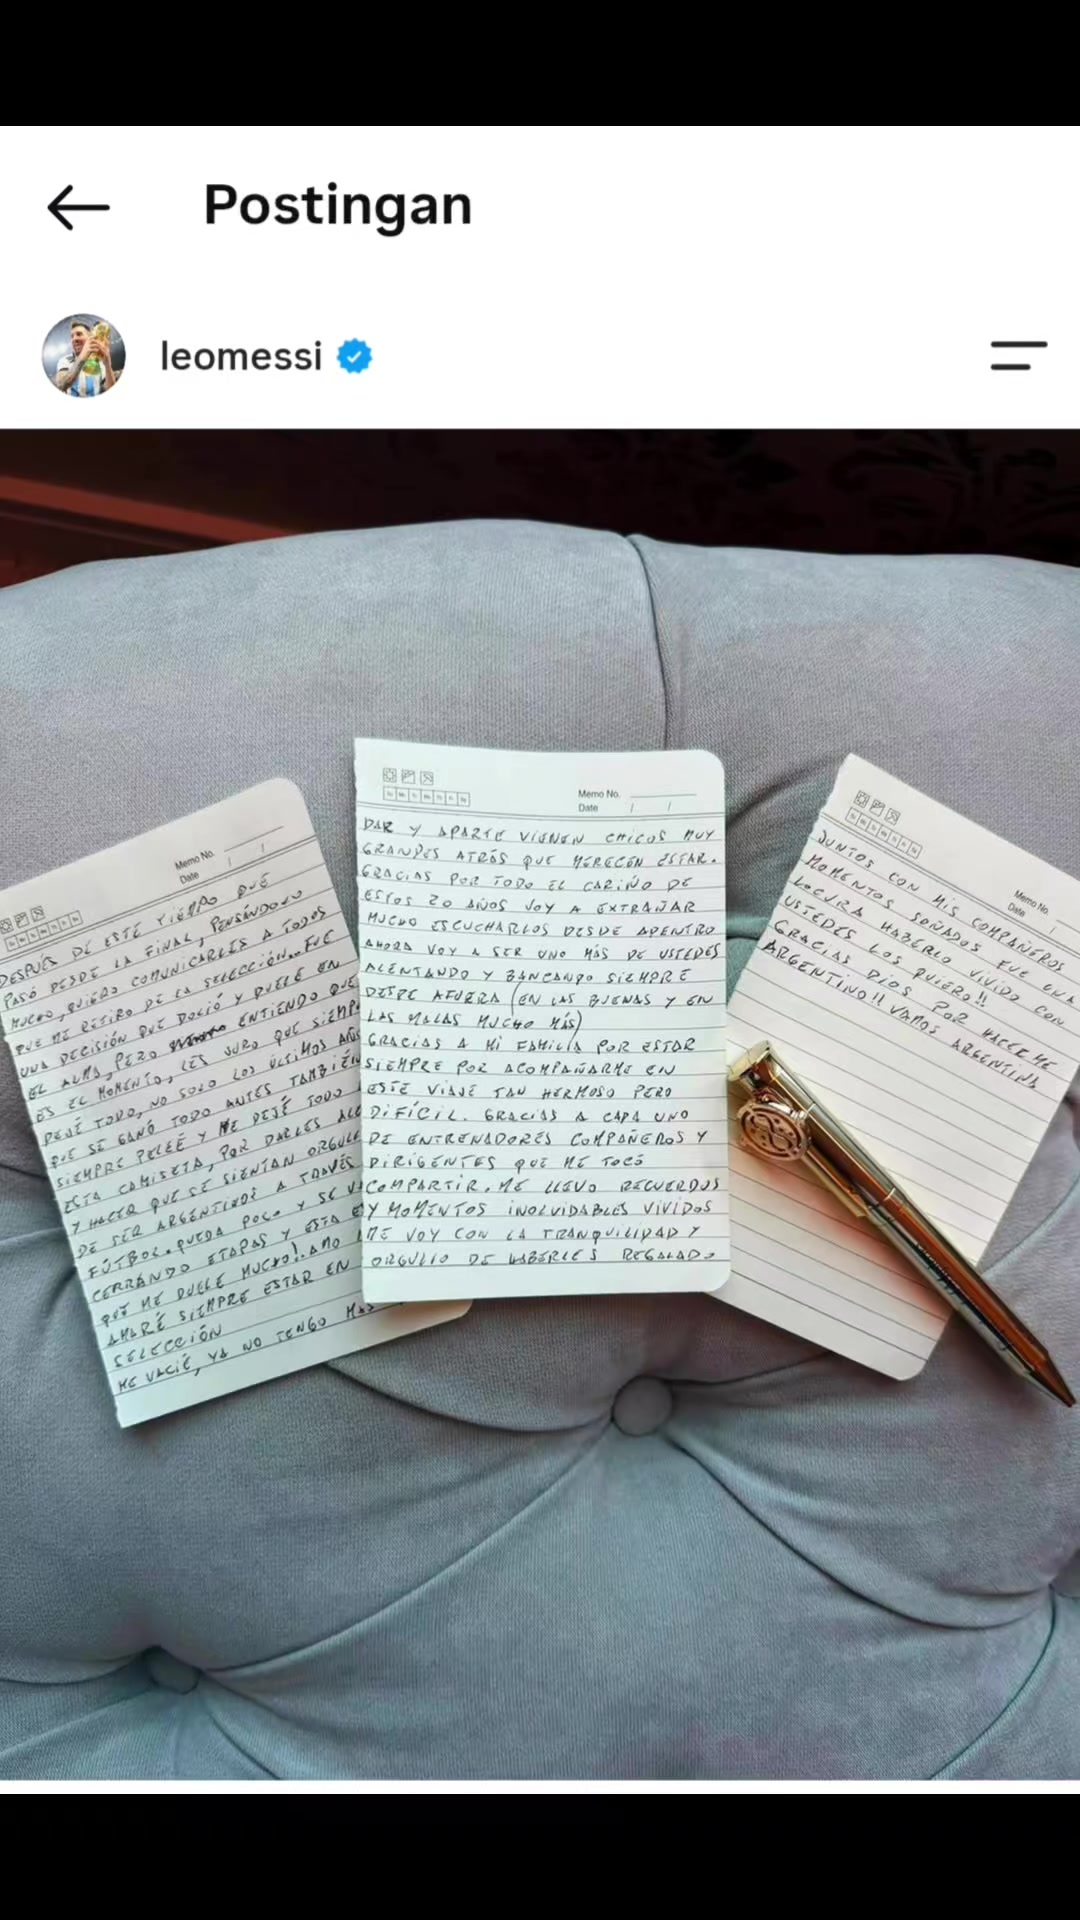 Postingan
leomessi
Memo No.
Date / /
DESPUÉS DE ESTE TIEMPO QUE
PASÓ DESDE LA FINAL, PENSÁNDOLO
MUCHO, QUIERO COMUNICARLES A TODOS
QUE ME RETIRO DE LA SELECCIÓN... FUE
UNA DECISIÓN QUE DOLIÓ Y DUELE EN
EL ALMA, PERO ENTIENDO QUE
ES EL MOMENTO, LES JURO QUE SIEMP
DEJÉ TODO, NO SOLO LOS ÚLTIMOS AÑOS
QUE SE GANÓ TODO ANTES TAMBIÉN
SIEMPRE PELEÉ Y ME DEJÉ TODO
ESTA CAMISETA, POR DARLES ALE
Y HACER QUE SE SIENTAN ORGULL
DE SER ARGENTINOS A TRAVÉS
FÚTBOL. QUEDA POCO Y SE V
CERRANDO ETAPAS Y ESTA E
QUE ME DUELE MUCHO!. AMO
AMARÉ SIEMPRE ESTAR EN
SELECCIÓN
ME VACIÉ, YA NO TENGO MÁS
Memo No.
Date / /
DAR Y APARTE VIENEN CHICOS MUY
GRANDES ATRÁS QUE MERECEN ESTAR.
GRACIAS POR TODO EL CARIÑO DE
ESTOS 20 AÑOS VOY A EXTRAÑAR
MUCHO ESCUCHARLOS DESDE ADENTRO
AHORA VOY A SER UNO MÁS DE USTEDES
ALENTANDO Y BANCANDO SIEMPRE
DESDE AFUERA (EN LAS BUENAS Y EN
LAS MALAS MUCHO MÁS)
GRACIAS A MI FAMILIA POR ESTAR
SIEMPRE POR ACOMPAÑARME EN
ESTE VIAJE TAN HERMOSO PERO
DIFÍCIL. GRACIAS A CADA UNO
DE ENTRENADORES COMPAÑEROS Y
DIRIGENTES QUE ME TOCÓ
COMPARTIR. ME LLEVO RECUERDOS
Y MOMENTOS INOLVIDABLES VIVIDOS
ME VOY CON LA TRANQUILIDAD Y
ORGULLO DE HABERLES REGALADO
Memo No.
Date /
JUNTOS CON MIS COMPAÑEROS
MOMENTOS SOÑADOS FUE UNA
LOCURA HABERLO VIVIDO CON
USTEDES LOS QUIERO!!
GRACIAS DIOS POR HACERME
ARGENTINO!! VAMOS ARGENTINA